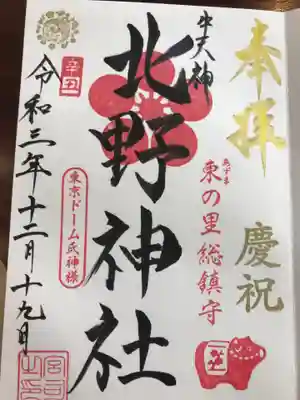 奉拝
慶祝
あずま
東の里総鎮守
牛天神
北野神社
東京ドーム氏神様
辛丑
令和三年十二月十九日